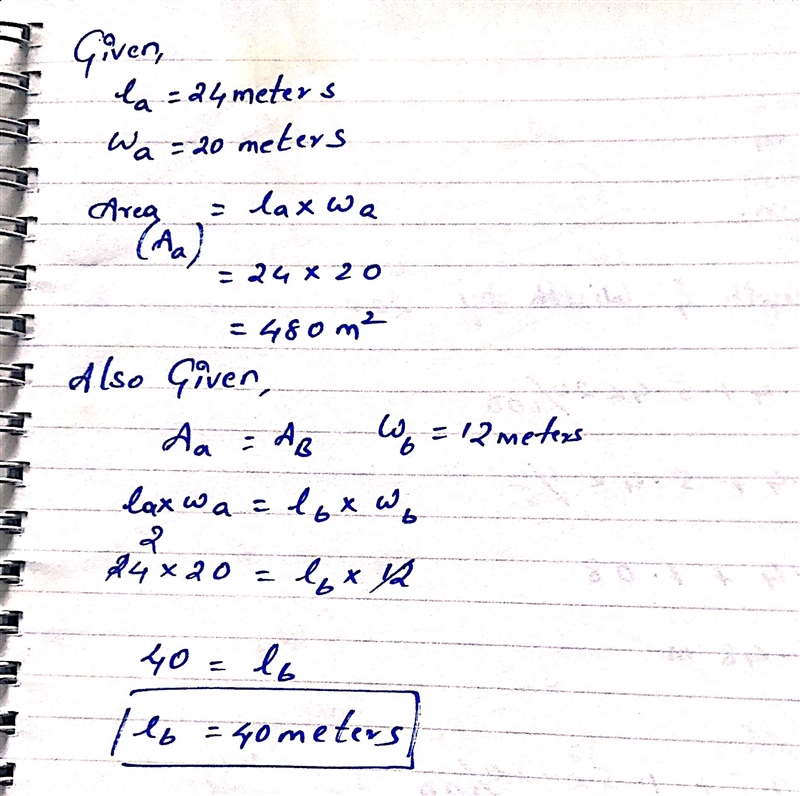 Given,
la = 24 meters
Wa = 20 meters
Area = la x wa
(Aa)
= 24 x 20
= 480 m²
Also Given,
Aa = AB Wb = 12 meters
lax wa = lb x wb
2
24 x 20 = lb x 12
40 = lb
lb = 40 meters